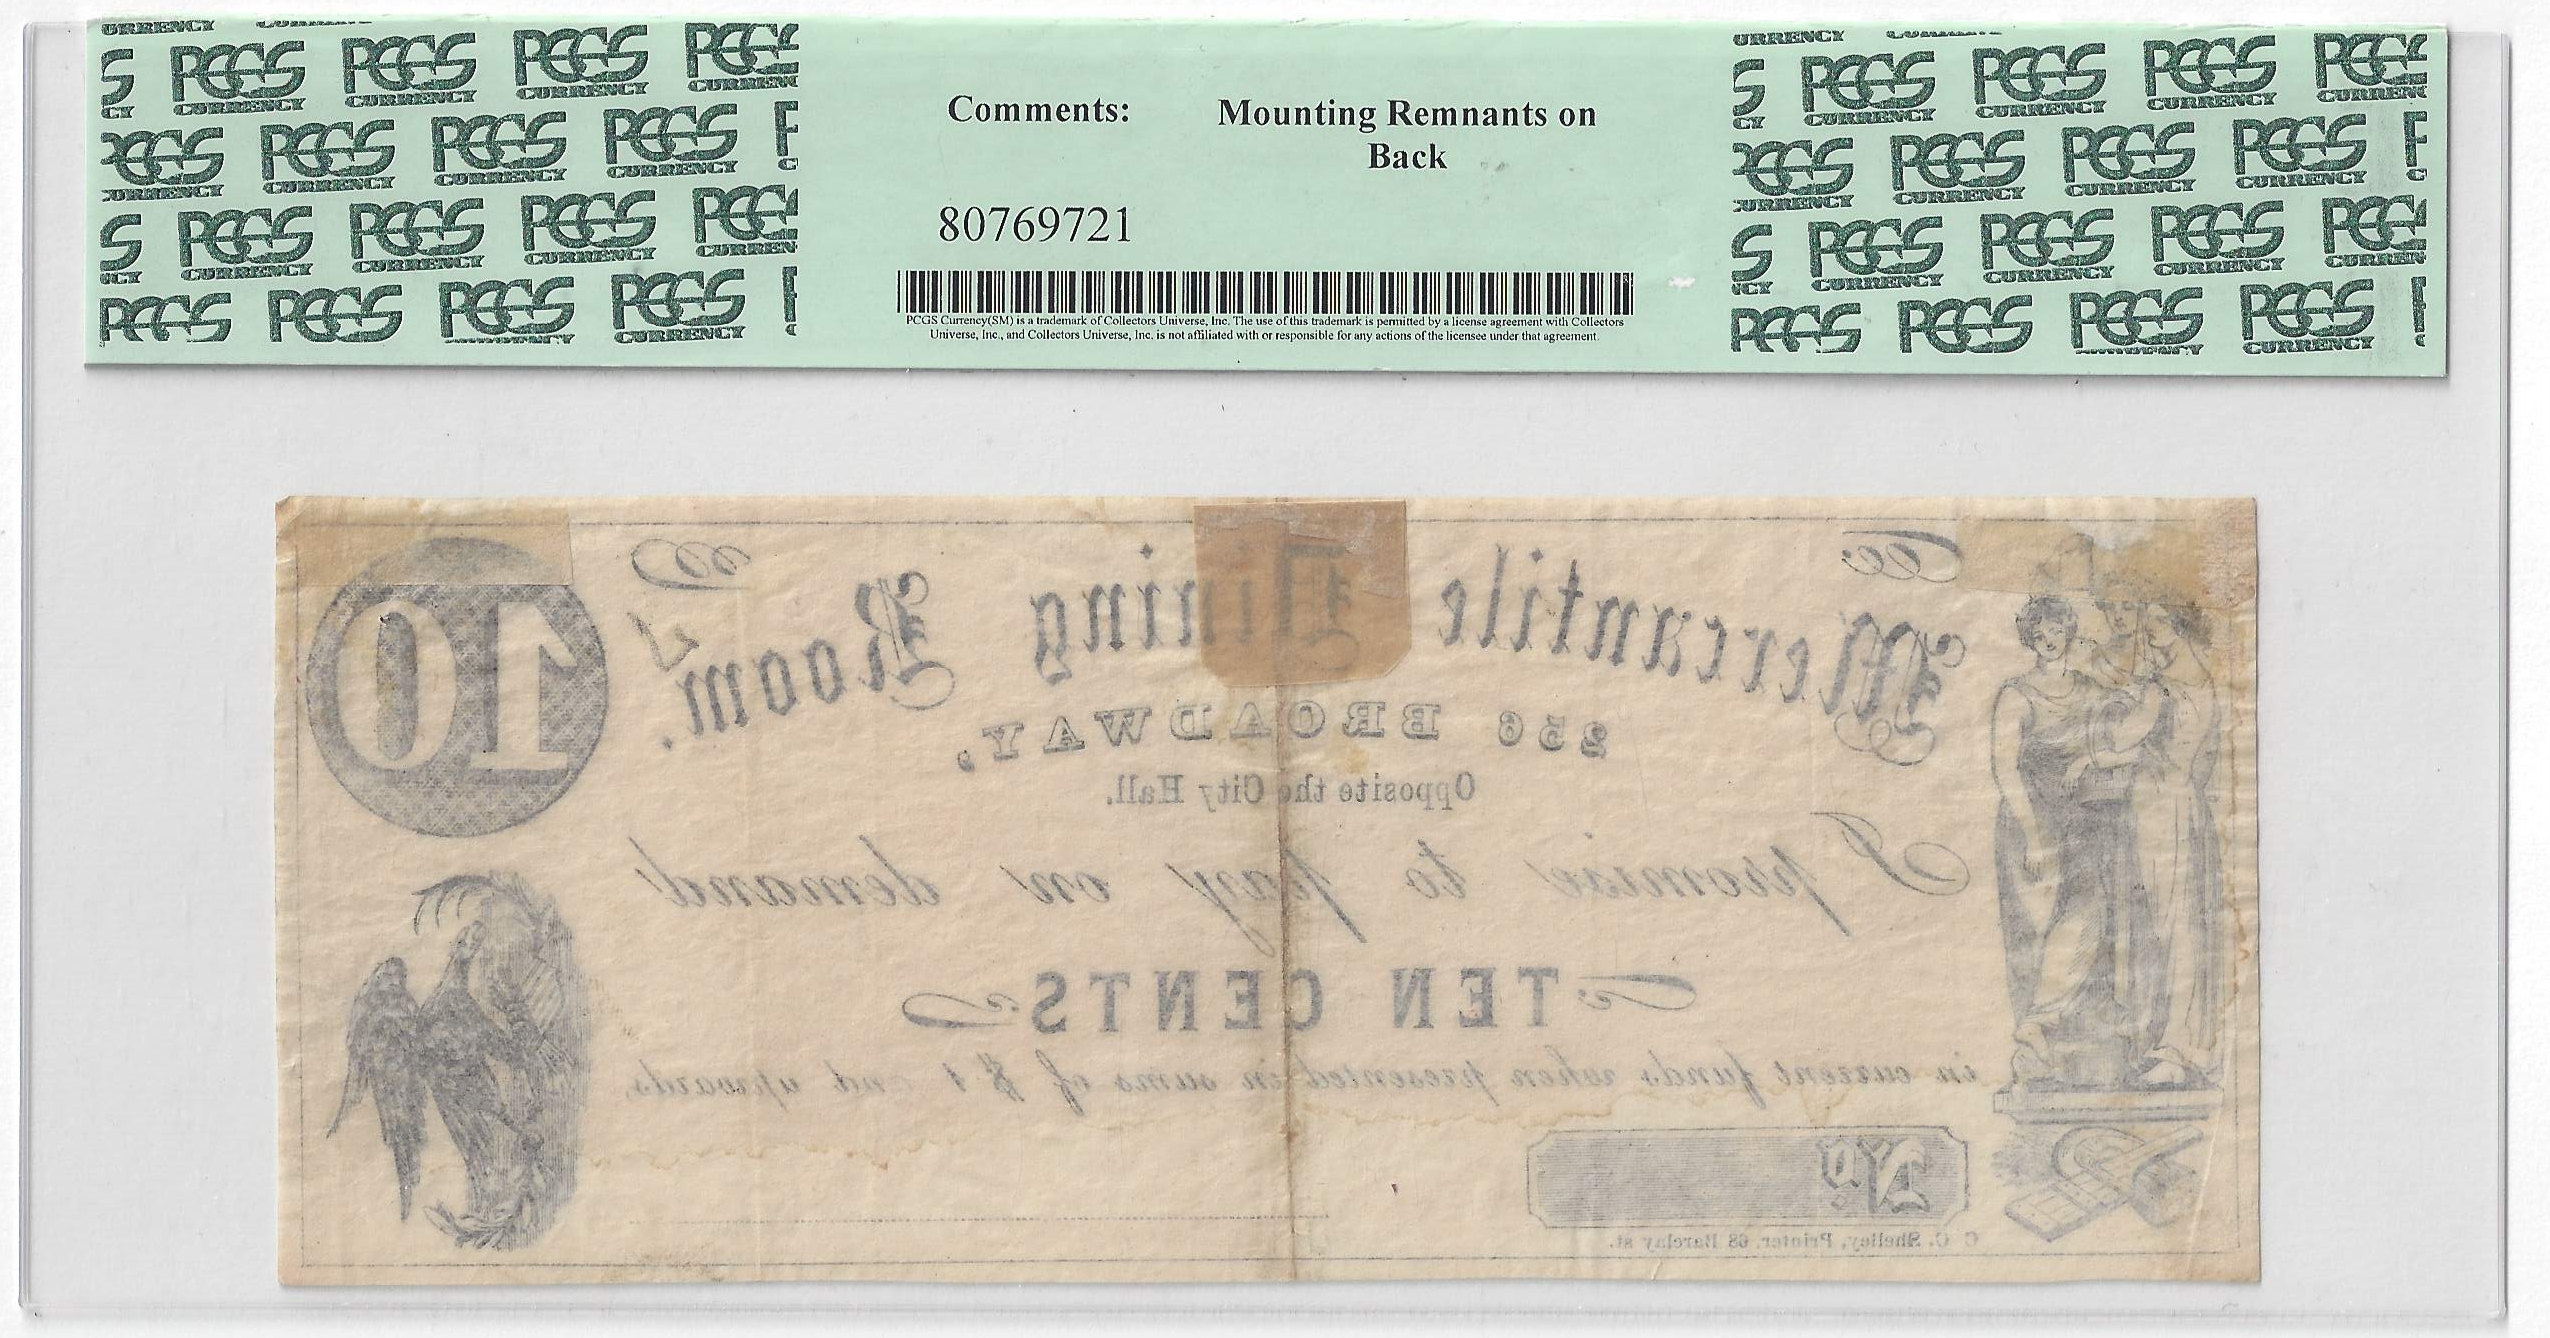 PCGS CURRENCY
Comments: Mounting Remnants on
Back
80769721
PCGS Currency(SM) is a trademark of Collectors Universe, Inc. The use of this trademark is permitted by a license agreement with Collectors
Universe, Inc., and Collectors Universe, Inc. is not affiliated with or responsible for any actions of the licensee under that agreement.
The
Mercantile Dining Room.
10
256 BROADWAY,
Opposite the City Hall.
I promise to pay on demand
TEN CENTS
in current funds when presented in sums of $1 and upwards.
No
C. C. Shelley, Printer, 68 Barclay st.